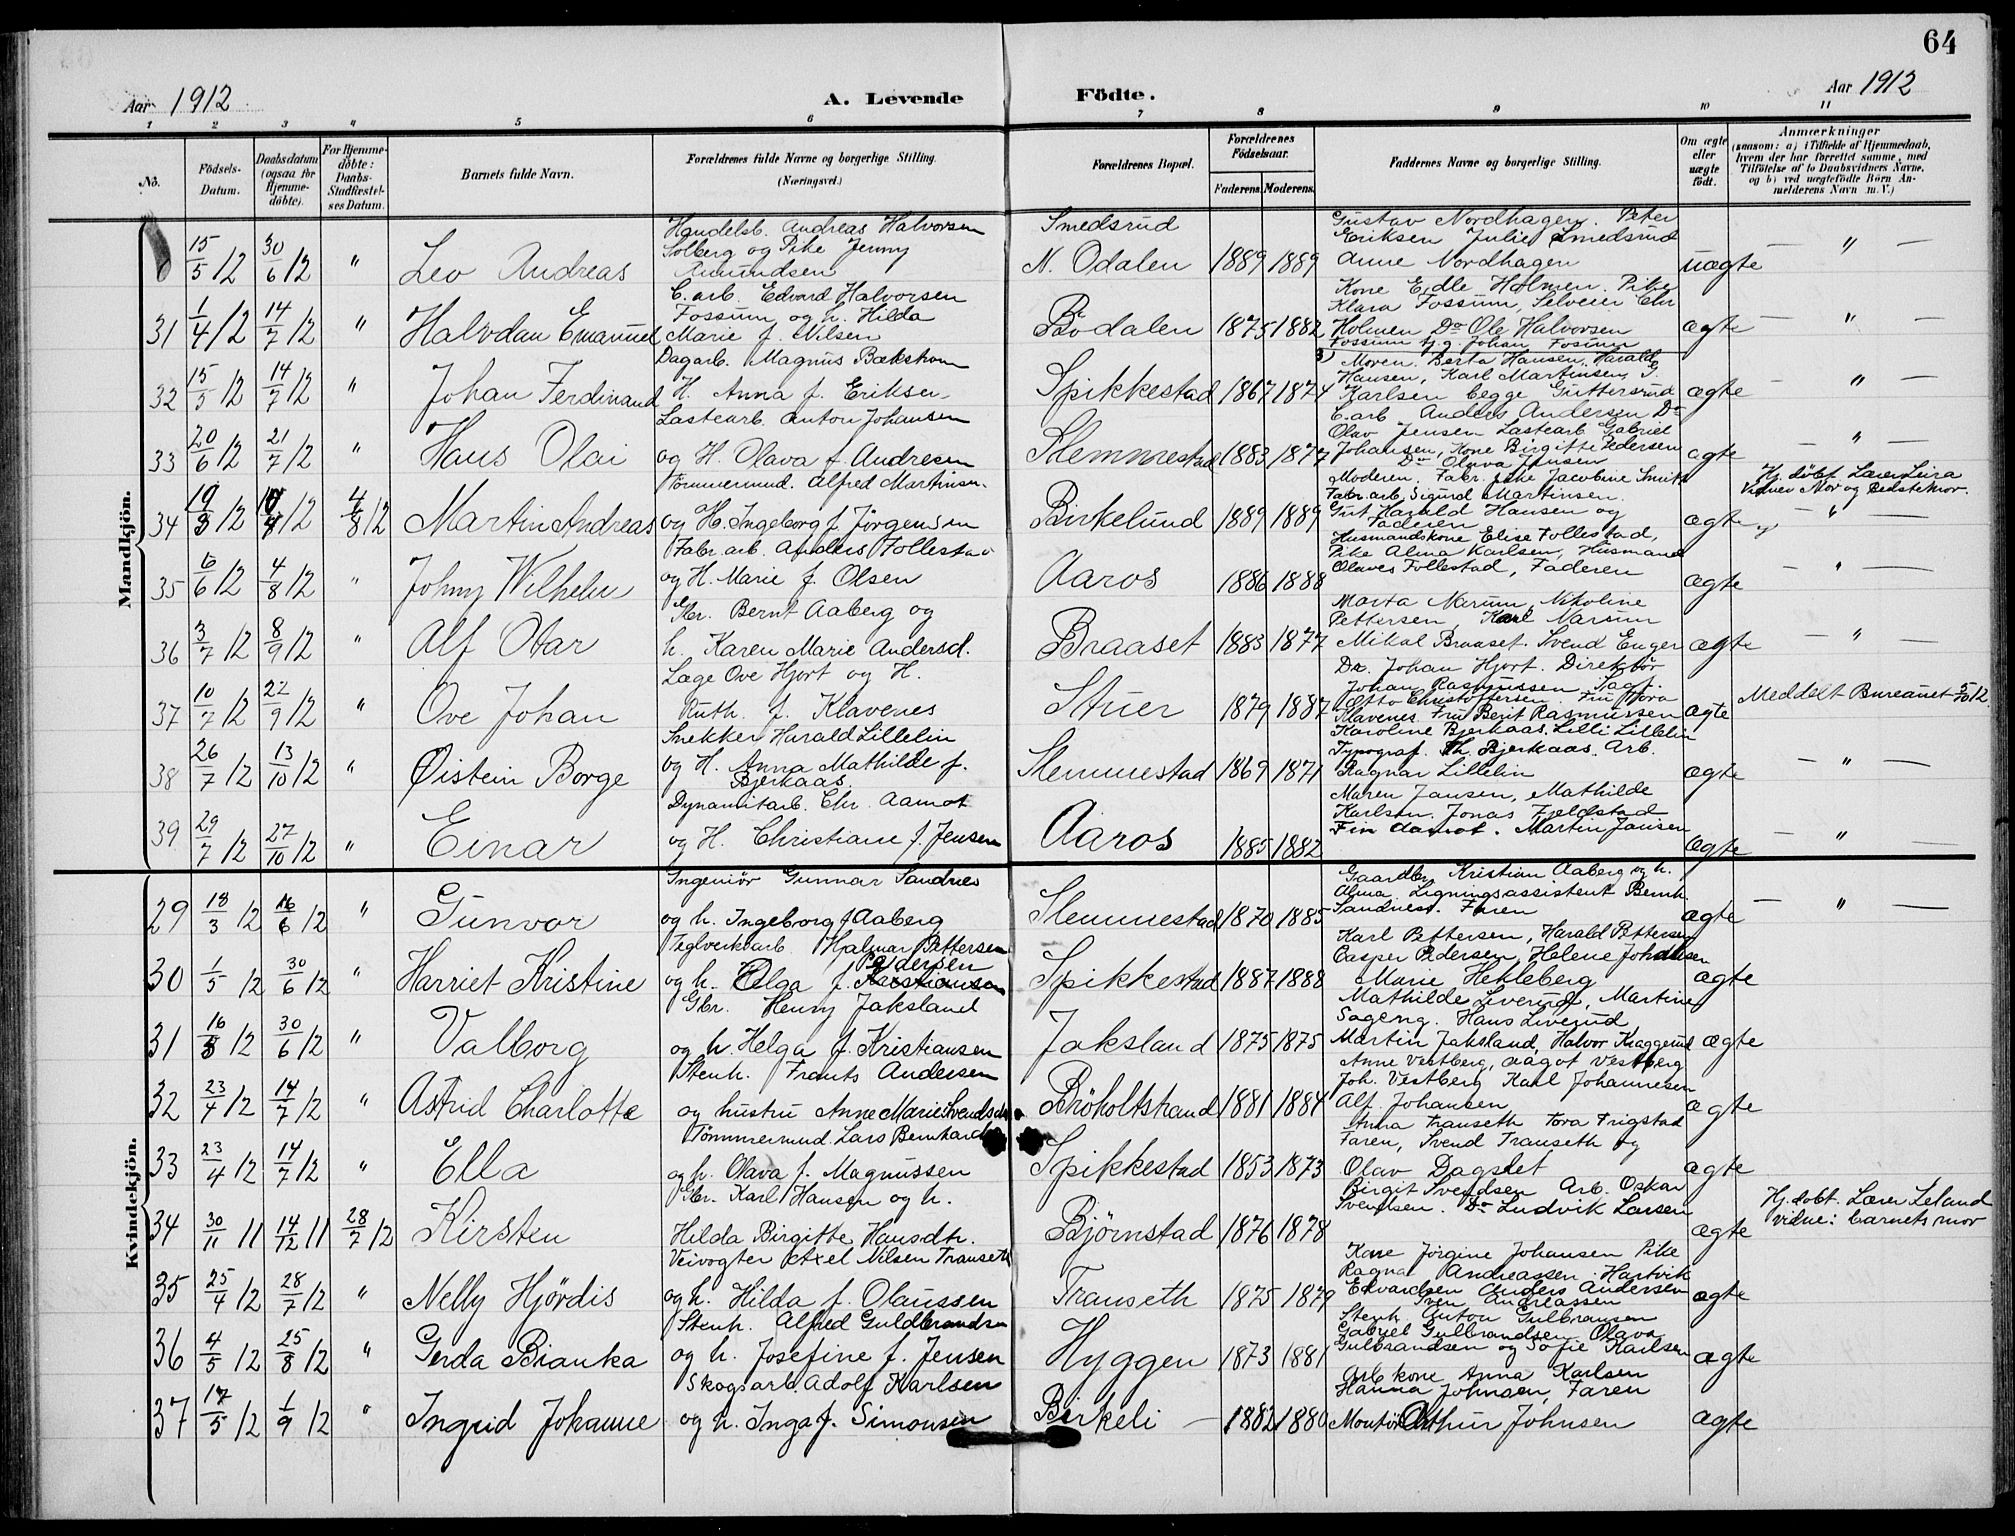 64
Aar 1912
A. Levende Födte.
Aar 1912
1 2 3 4 5 6 7 8 9 10 11
No.
Födsels-Datum.
Daabsdatum (ogsaa for Hjemme-döbte).
For Hjemme-döbte: Daabs-Stadfæstel-ses Datum.
Barnets fulde Navn.
Forældrenes fulde Navne og borgerlige Stilling. (Næringsvei.)
Forældrenes Bopæl.
Forældrenes Födselsaar.
Faderens. Moderens.
Faddernes Navne og borgerlige Stilling.
Om ægte eller uægte födt.
Anmærkninger
(saasom: a) i Tilfælde af Hjemmedaab, hvem der har forrettet samme, med Tilföielse af to Daabsvidners Navne, og b) ved uægtefödte Börn Anmelderens Navn m. V.)
Mandkjön.
15/5 12 30/6 12 " Leo Andreas
Handelsb. Andreas Halvorsen
Solberg og Pike Jenny
Amundsen
Smedsrud
N. Odalen 1889 1889
Gustav Nordhagen. Peter
Eriksen Julie Smedsrud
Anne Nordhagen
uægte — " —
31 1/4 12 14/7 12 " Halvdan Emanuel
C. arb. Edvard Halvorsen
Fossum og h. Hilda
Marie f. Nilsen
Bödalen 1875 1882
Kone Edle Holmen. Pike
Klara Fossum, Selveier Chr
Holmen Do Ole Halvorsen
Fossum tj.g. Johan Fosum
ægte — " —
32 15/5 12 14/7 12 " Johan Ferdinand
Dagarb. Magnus Bækstrøm
H. Anna f. Eriksen
Spikkestad 1867 1874
Moren. Berta Hansen, Harald
Hansen, Karl Martinsen, G.
Karlsen begge Guttersrud
ægte — " —
33 20/6 12 21/7 12 " Hans Olai
Lastearb. Anton Johansen
og H. Olava f. Andresen
Slemmestad 1883 1877
C. arb. Anders Andersen Do
Olav Jensen Lastearb. Gabriel
Johansen, Kone Birgitte Pedersen
Do Olava Jensen
ægte — " —
34 19/3 12 12 4/8 12 Martin Andreas
Tömmermnd. Alfred Martinsen
og H. Ingeborg f. Jörgensen
Birkelund 1889 1889
Moderen. Fabr. pike Jacobine Smith
Fabr. arb. Sigurd Martinsen.
Gut Harald Hansen og
Faderen
ægte — " —
Hj. döbt Lærer Leira
Vidner Mor og Bedstemor.
35 6/6 12 4/8 12 " Johny Wilhelm
Fabr. arb. Anders Follestad
og H. Marie f. Olsen
Aaros 1886 1888
Husmandskone Elise Follestad,
Pike Alma Karlsen, Husmand
Olaves Follestad, Faderen
ægte — " —
36 3/7 12 8/9 12 " Alf Otar
Gbr. Bernt Aaberg og
h. Karen Marie Andersd.
Braaset 1883 1877
Marta Narum, Nikoline
Pettersen, Karl Narum
Mikal Braaset. Svend Enger
ægte — " —
37 10/7 12 22/9 12 " Ove Johan
Læge Ove Hjort og H.
Ruth. f. Klavenes
Stuer 1879 1887
Dr. Johan Hjort. Direktör
Johan Rasmussen, Sagf.
Otto Christoffersen. Fru Thora
Klavenes Fru Berit Rasmussen
ægte
Meddelt Bureauet 5/10 12.
38 26/7 12 13/10 12 " Øistein Borge
Snekker Harald Lillelin
og H. Anna Mathilde f.
Bjerkaas
Slemmestad 1869 1871
Karoline Bjerkaas. Lilli Lillelin
Typograf. Th. Bjerkaas. Arb.
Ragnar Lillelin
ægte — " —
39 29/7 12 27/10 12 " Einar
Dynamitarb. Chr. Aamot
og H. Christiane f. Jensen
Aaros 1885 1882
Maren Jansen, Mathilde
Karlsen. Jonas Fjeldstad
Fin Aamot. Martin Jansen
ægte — " —
Kvindekjön.
29 18/3 12 16/6 12 " Gunvor
Ingeniör Gunnar Sandnes
og h. Ingeborg f Aaberg
Slemmestad 1870 1885
Gaardbr. Kristian Aaberg og h.
Alma. Ligningsassistent Bernh.
Sandnes. Faren
ægte — " —
30 1/5 12 30/6 12 " Harriet Kristine
Teglverksarb. Hjalmar Pettersen
Pedersen
og h. Olga f. Kristiansen
Spikkestad 1887 1888
Karl Pettersen, Harald Pettersen
Casper Pedersen, Helene Johansen
Marie Hekleberg
ægte
31 16/3 12 30/6 12 " Valborg
Gbr. Henry Jaksland
og h. Helga f. Kristiansen
Jaksland 1875 1875
Mathilde Liverud, Martine
Sageng. Hans Liverud
Martin Jaksland, Halvor Kraggerud
ægte
32 23/4 12 14/7 12 " Astrid Charlotte
Stenh. Frants Andersen
og hustru Anne Marie Svendsen
Bröholtstrand 1881 1884
Anne Vestberg, Aagot Vestberg
Joh. Vestberg Karl Johannesen
Alf. Johansen
ægte
33 23/4 12 14/7 12 " Ella
Tömmermnd. Lars Bernhard
og h. Olava f. Magnussen
Spikkestad 1853 1873
Anna Transeth Tora Frigstad
Faren, Svend Transeth og
Olav Dagslet
ægte
34 30/11 11 14/12 11 28/7 12 Kirsten
Gbr. Karl Hansen og h.
Hilda Birgitte Hansdtr.
Bjørnstad 1876 1878
Birgit Svendsen Arb. Oskar
Svendsen. Do Ludvik Larsen
ægte
Hj. döbt. Lærer Leland
vidne: barnets mor
35 25/4 12 28/7 12 " Nelly Hjördis
Veivogter Axel Nilsen Transeth
og h. Hilda f. Olaussen
Transeth 1875 1879
Kone Jörgine Johansen Pike
Ragna Andreassen. Hartvik
Edvardsen Anders Andersen
Sven Andreassen
ægte
36 4/5 12 25/8 12 " Gerda Bianka
Stenh. Alfred Guldbrandsen
og h. Josefine f. Jensen
Hyggen 1873 1881
Stenh. Anton Gulbransen
Gabriel Gulbrandsen. Olava
Gulbrandsen og Sofie Karlsen
ægte
37 17/5 12 1/9 12 " Ingrid Johanne
Skogsarb. Adolf Karlsen
og h. Inga f. Simonsen
Birkeli — 1882 1880
Arb kone Anna Karlsen
Hanna Johnsen, Faren
Montör Arthur Johnsen
ægte